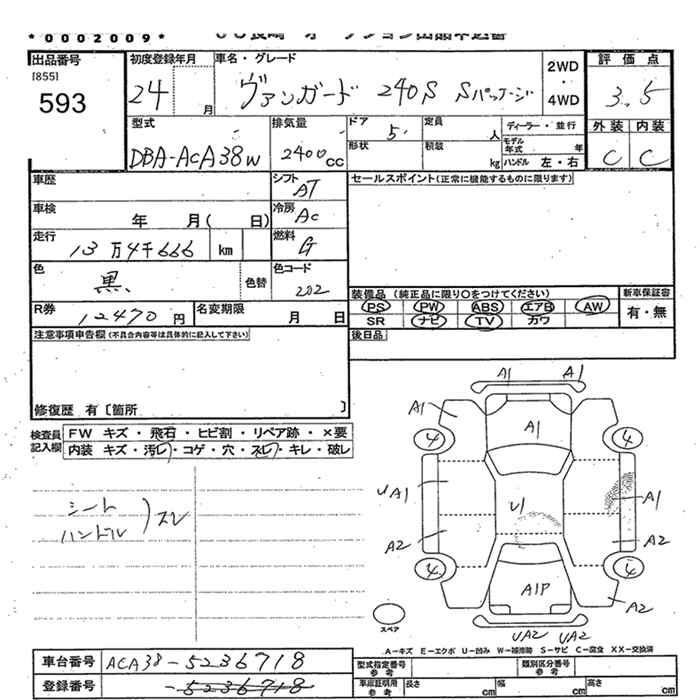 *0002009*
出品番号 初度登録年月 車名・グレード 2WD 評価点
[855]
593 24 月 ヴァンガード 240S Sパッケージ 4WD 3.5
型式 排気量 ドア 5 定員 人 ディーラー・並行 外装 内装
DBA-ACA38W 2400cc 形状 積装 kg モデル年式 年 ハンドル 左・右 C C
車歴 シフト AT セールスポイント(正常に機能するものに限ります)
車検 年 月( 日) 冷房 AC
走行 13万4千666 km 燃料 G
色 黒 色替 色コード 202 装備品 (純正品に限り○をつけてください) 新車保証書
R券 12470円 名変期限 月 日 PS PW ABS エアB AW 有・無
SR ナビ TV カワ
注意事項申告欄(不具合内容等は具体的に記入して下さい) 後日品
修復歴 有〔箇所 〕
検査員記入欄 FW キズ・飛石・ヒビ割・リペア跡・×要
内装 キズ・汚レ・コゲ・穴・スレ・キレ・破レ
シート
ハンドル )スレ
A1 A1
A1 A1
4 4
UA1 U1 A1
A2 A2
4 4
A1P A2
スペア UA2 UA2
A-キズ E-エクボ U-凹み W-補修跡 S-サビ C-腐食 XX-交換済
車台番号 ACA38-5236718 型式指定番号 参考 類別区分番号 参考
登録番号 5236718 車庫証明用 参考 長さ cm 幅 cm 高さ cm